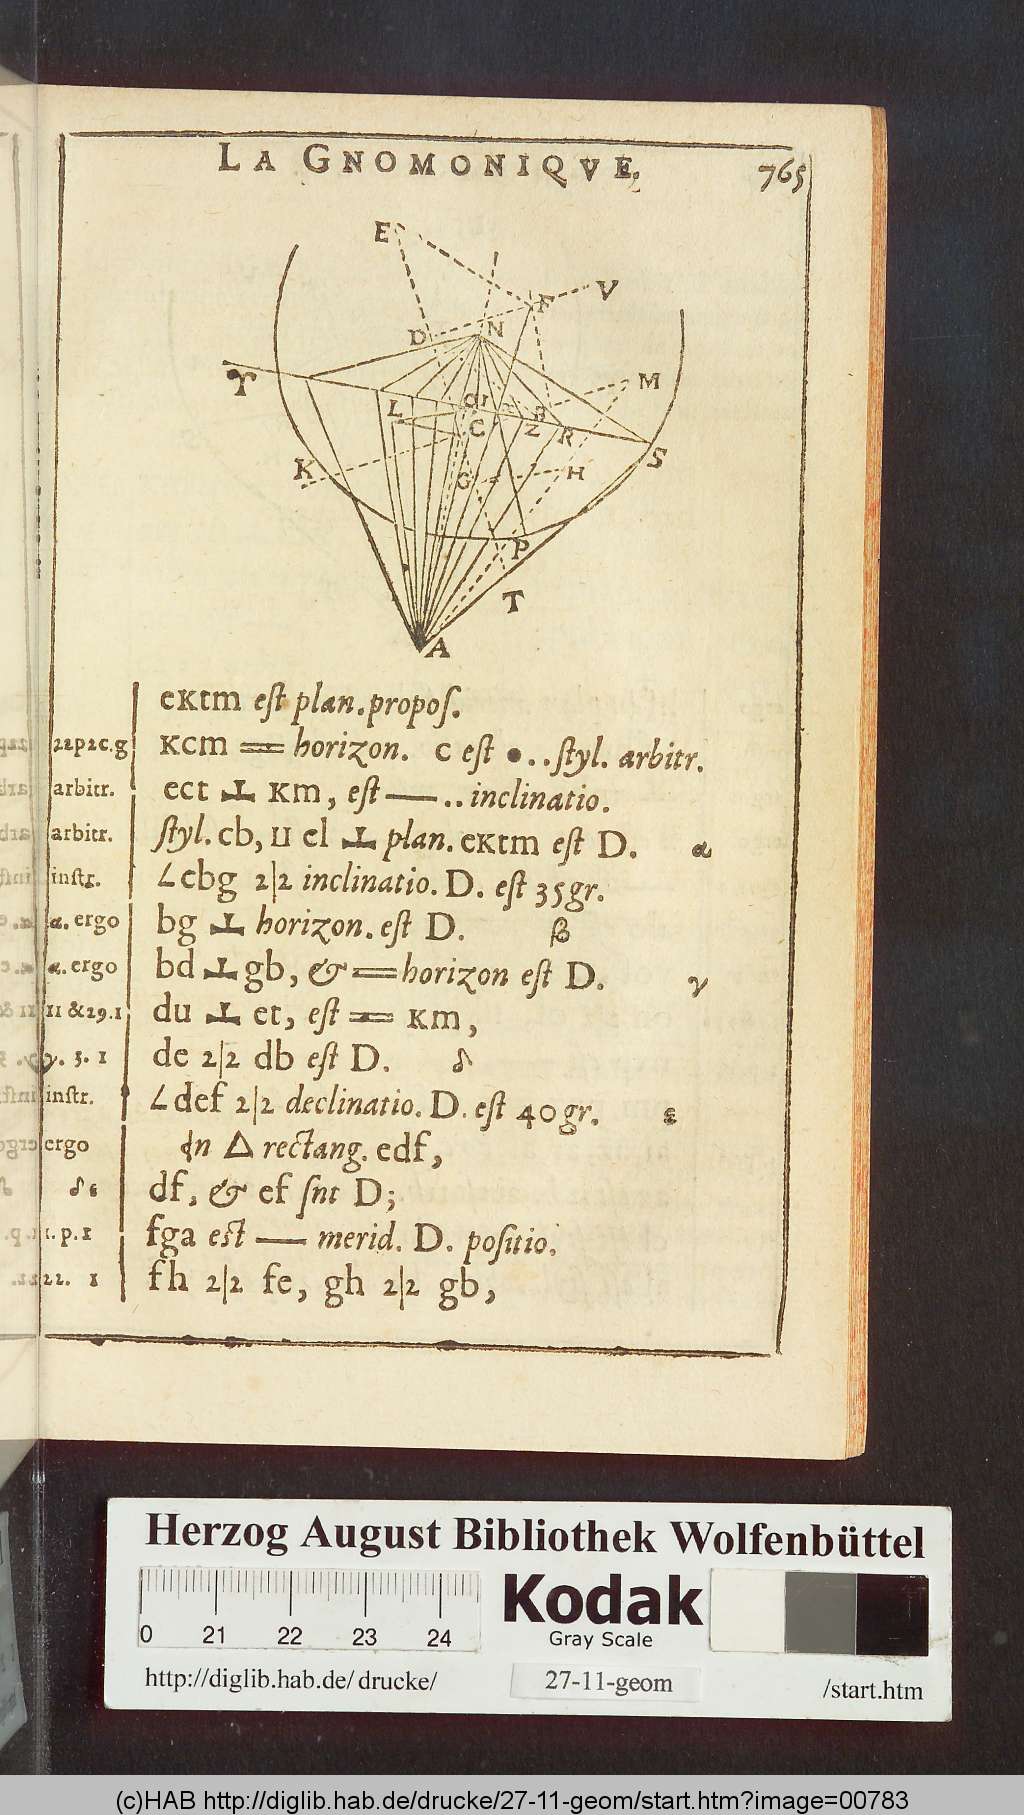 LA GNOMONIQVE.
765
E
V
F
D
N
M
ϒ
L
C
Z
R
S
K
G
H
P
T
A
eKtm est plan.propos.
22p2c.g Kcm == horizon. c est •..styl. arbitr.
arbitr. ect ⊥ Km, est —..inclinatio.
arbitr. styl. cb, 11 el ⊥ plan. eKtm est D. α
instr. ∠ebg 2|2 inclinatio. D. est 35gr.
α. ergo bg ⊥ horizon. est D. β
α. ergo bd ⊥ gb, & == horizon est D. γ
11 &29.1 du ⊥ et, est == Km,
γ. 3. 1 de 2|2 db est D. δ
instr. ∠def 2|2 declinatio. D. est 40gr. ε
ergo In △ rectang. edf,
δ ε df, & ef snt D;
1. p. 1 fga est — merid. D. positio.
22. 1 fh 2|2 fe, gh 2|2 gb,
Herzog August Bibliothek Wolfenbüttel
0 21 22 23 24
Kodak
Gray Scale
http://diglib.hab.de/drucke/ 27-11-geom /start.htm
(c)HAB http://diglib.hab.de/drucke/27-11-geom/start.htm?image=00783